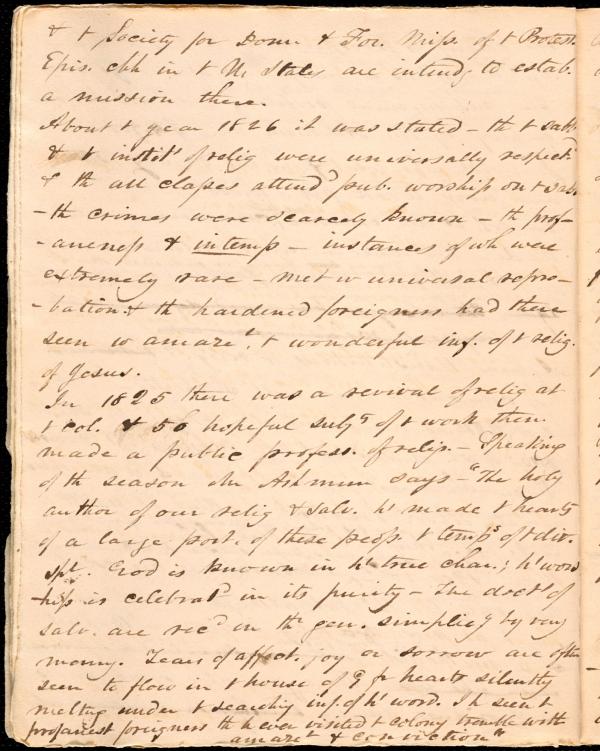 & t Society for Dom. & For. Miss. of t Protest.
Epis. chh in t U. States are intendg to estab.
a mission there.
About t year 1826 it was stated - th t sabb.
& t instit.s of relig were universally respect.d
& th all classes attend.d pub. worship on t sab.
- th crimes were scarcely known - th prof-
- aneness & intemp - instances of wh were
extremely rare - met w universal repro-
- bation. & th hardened foreigners had there
seen w amaze.t, t wonderful inf. of t relig.
of Jesus.
In 1825 there was a revival of relig at
t col. & 56 hopeful subj.s of t work then
made a public profess. of relig. - Speaking
of th season Mr Ashmun says - "The holy
author of our relig & salv. h.s made t hearts
of a large port. of these peop. t temp.s of t div.
Spt. God is known in h.s true char.; h.s wor
- hip is celebrat.d in its purity - The doct.s of
salv. are rec.d in th.r gen. simplic.y by very
many. Tears of affect. joy or sorrow are often
seen to flow in t house of G fr hearts silently
melting under t searching inf. of h.s word. I h seen t
profanest foreigners th h ever visited t colony tremble with
amaze.t & conviction"